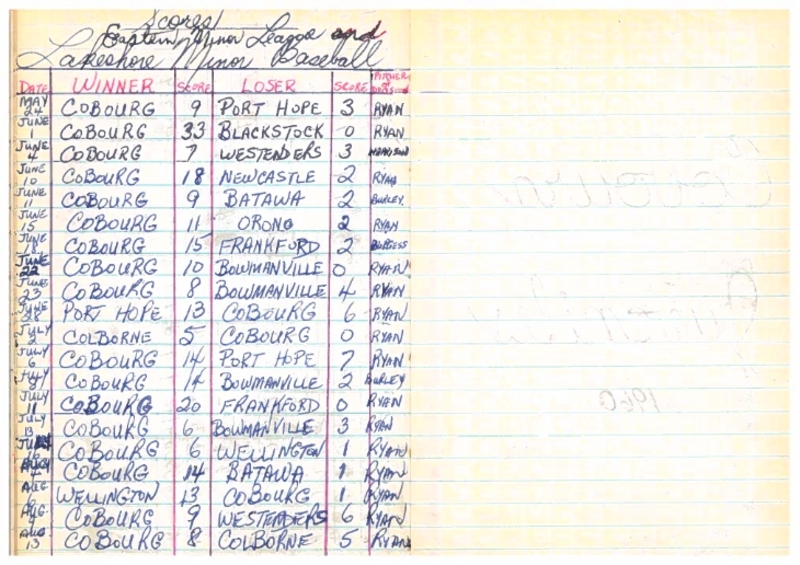 Scores
Eastern Minor League and
Lakeshore Minor Baseball
DATE WINNER SCORE LOSER SCORE PITCHER
MAY 24 COBOURG 9 PORT HOPE 3 RYAN
JUNE 1 COBOURG 33 BLACKSTOCK 0 RYAN
JUNE 4 COBOURG 7 WESTENDERS 3
JUNE 10 COBOURG 18 NEWCASTLE 2 RYAN
JUNE 11 COBOURG 9 BATAWA 2 BURLEY
JUNE 15 COBOURG 11 ORONO 2 RYAN
JUNE 18 COBOURG 15 FRANKFORD 2 BURGESS
JUNE 22 COBOURG 10 BOWMANVILLE 0 RYAN
JUNE 23 COBOURG 8 BOWMANVILLE 4 RYAN
JUNE 28 PORT HOPE 13 COBOURG 6 RYAN
JULY 2 COLBORNE 5 COBOURG 0 RYAN
JULY 6 COBOURG 14 PORT HOPE 7 RYAN
JULY COBOURG 14 BOWMANVILLE 2 BURLEY
JULY 11 COBOURG 20 FRANKFORD 0 RYAN
JULY 13 COBOURG 6 BOWMANVILLE 3 RYAN
16 COBOURG 6 WELLINGTON 1 RYAN
COBOURG 14 BATAWA 1 RYAN
AUG 6 WELLINGTON 13 COBOURG 1 RYAN
AUG 9 COBOURG 9 WESTENDERS 6 RYAN
AUG 13 COBOURG 8 COLBORNE 5 RYAN